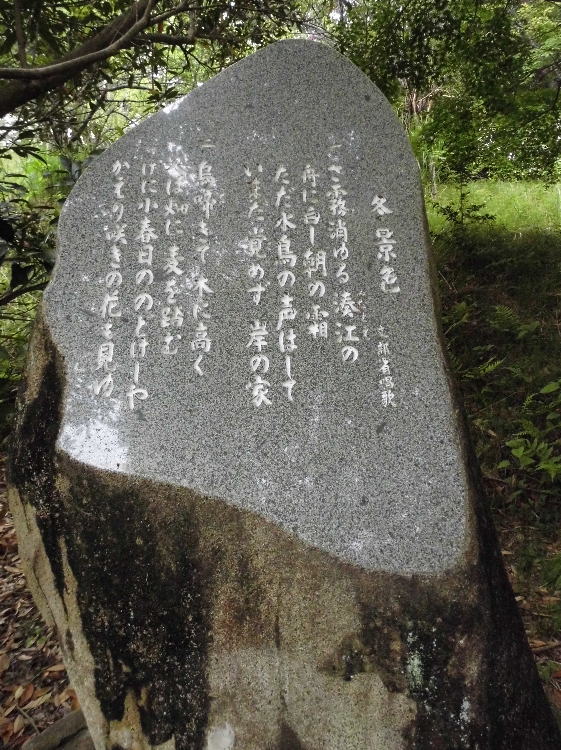 冬景色
文部省唱歌
一 さ霧消ゆる湊江の
舟に白し朝の霜
ただ水鳥の声はして
いまだ覚めず 岸の家
烏啼きて 木に高く
は畑に 麦を踏む
げに小春日ののどけしや
かえり咲きの花も見ゆ